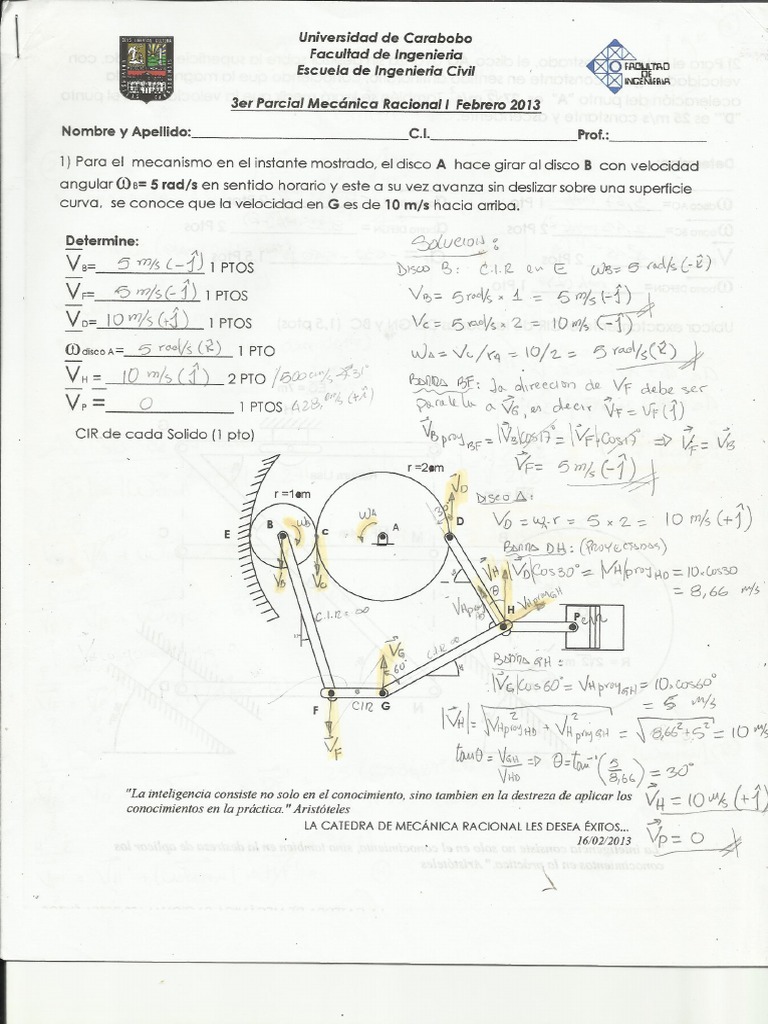 Universidad de Carabobo
Facultad de Ingenieria
Escuela de Ingenieria Civil
FACULTAD
DE
INGENIERIA
3er Parcial Mecánica Racional I Febrero 2013
Nombre y Apellido:____________________C.I.______________Prof.:____________
1) Para el mecanismo en el instante mostrado, el disco A hace girar al disco B con velocidad
angular ωB= 5 rad/s en sentido horario y este a su vez avanza sin deslizar sobre una superficie
curva, se conoce que la velocidad en G es de 10 m/s hacia arriba.
Determine:
VB= 5 m/s (-ĵ) 1 PTOS
VF= 5 m/s (-ĵ) 1 PTOS
VD= 10 m/s (+ĵ) 1 PTOS
ω disco A= 5 rad/s (k̂) 1 PTO
VH = 10 m/s (ĵ) 2 PTO
VP = 0 1 PTOS
CIR de cada Solido (1 pto)
Solucion:
Disco B: C.I.R en E ωB = 5 rad/s (-k̂)
VB = 5 rad/s × 1 = 5 m/s (-ĵ)
VC = 5 rad/s × 2 = 10 m/s (-ĵ)
ωA = VC/rA = 10/2 = 5 rad/s (k̂)
Barra BF: La direccion de VF debe ser
Paralela a VG, es decir VF = VF (ĵ)
VB proy BF = |VB| cos17° = |VF| cos17° => VF = VB
VF = 5 m/s (-ĵ)
Disco A:
VD = ωA·r = 5 × 2 = 10 m/s (+ĵ)
Barra DH: (Proyectados)
|VD| cos30° = |VH| proy HD = 10·cos30
= 8,66 m/s
Barra GH:
|VG| cos60° = VH proy GH = 10·cos60°
= 5 m/s
|VH| = √(VH proy HD² + VH proy GH²) = √(8,66² + 5²) = 10 m/s
tanθ = VGH/VHD => θ = tan⁻¹(5/8,66) = 30°
VH = 10 m/s (+ĵ)
VP = 0
r =1m
r =2m
E
B
ωB
C
ωA
A
D
VD
30°
VB
VC
C.I.R = ∞
VH
θ
VH proy GH
H
P
CIR
VG
60°
C.I.R ∞
F
CIR
G
VF
"La inteligencia consiste no solo en el conocimiento, sino tambien en la destreza de aplicar los
conocimientos en la práctica." Aristóteles
LA CATEDRA DE MECÁNICA RACIONAL LES DESEA ÉXITOS...
16/02/2013